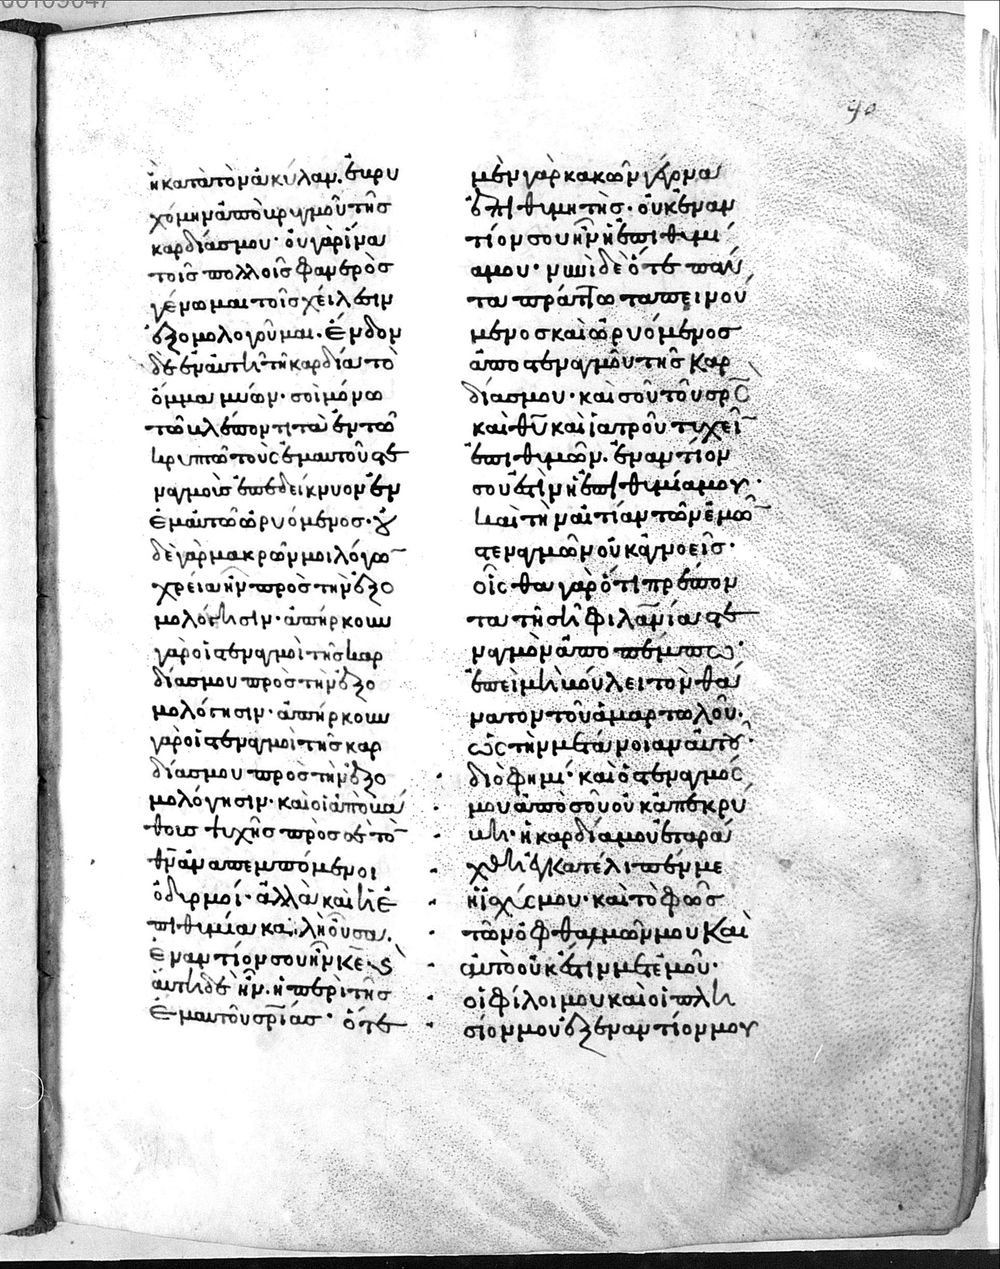 40
ἢ κατὰ τὸν ἀκύλαν. ἐβρυ
χόμην ἀπὸ βρυγμοῦ τῆς
καρδίας μου· οὐ γὰρ ἵνα
τοῖς πολλοῖς φανερὸς
γένωμαι τοῖς χείλεσιν
ἐξομολογοῦμαι. ἔνδον
δὲ ἐν αὐτῆ τῆ καρδία τὸ
ὄμμα μύων· σοὶ μόνω
τῶ βλέποντι τὰ ἐν τῶ
κρυπτῶ τοὺς ἐμαυτοῦ στε
ναγμοὺς ἐπεδείκνυον ἐν
ἐμαυτῶ ὠρυόμενος· οὐ
δὲ γὰρ μακρῶν μοι λόγω
χρεία ἦν πρὸς τὴν ἐξο
μολόγησιν· ἀπήρκουν
γὰρ οἱ στεναγμοὶ τῆς καρ
δίας μου πρὸς τὴν ἐξο
μολόγησιν· ἀπήρκουν
γὰρ οἱ στεναγμοὶ τῆς καρ
δίας μου πρὸς τὴν ἐξο
μολόγησιν· καὶ οἱ ἀπὸ βά
θους ψυχῆς πρὸς σὲ τὸ
θν ἀναπεμπόμενοι
ὀδυρμοί· ἀλλὰ καὶ ἡ ἐ
πιθυμία
ἐναντίον σου ἦν κε·
αὕτη δὲ ἦν. ἡ περὶ τῆς
ἐμαυτοῦ σρίας· ὅτε
μὲν γὰρ κακῶν
ἐπιθυμητὴς· οὐκ ἐναν
τίον σου ἦν ἡ ἐπιθυμί
α μου· νυνὶ δὲ ὅτε πάν
τα πράττω ταπεινού
μενος καὶ ὠρυόμενος
ἀπὸ στεναγμοῦ τῆς καρ
δίας μου· καὶ σοῦ τοῦ σρς
καὶ θυ καὶ ἰατροῦ τυχεῖ
ἐπιθυμῶν. ἐναντίον
σου ἐστὶν ἡ ἐπιθυμία μου·
καὶ τὴν αἰτίαν τῶν ἐμῶ
στεναγμῶν οὐκ ἀγνοεῖς·
οἶσθα γὰρ ὅτι πρέπον
τα τῆ σῆ φιλανία στε
ναγμὸν ἀποπέμπω·
ἐπεὶ μὴ βούλει τὸν θά
νατον τοῦ ἁμαρτωλοῦ.
ὡς τὴν μετάνοιαν αὐτοῦ·
διὸ φημί· καὶ ὁ στεναγμός
μου ἀπὸ σοῦ οὐκ ἀπεκρύ
βη· ἡ καρδία μου ἐταρά
χθη ἐγκατέλιπέν με
ἡ ἰσχύς μου· καὶ τὸ φῶς
τῶν ὀφθαλμῶν μου καὶ
αὐτὸ οὐκ ἔστιν μετ' ἐμοῦ·
οἱ φίλοι μου καὶ οἱ πλη
σίον μου ἐξ ἐναντίον μου